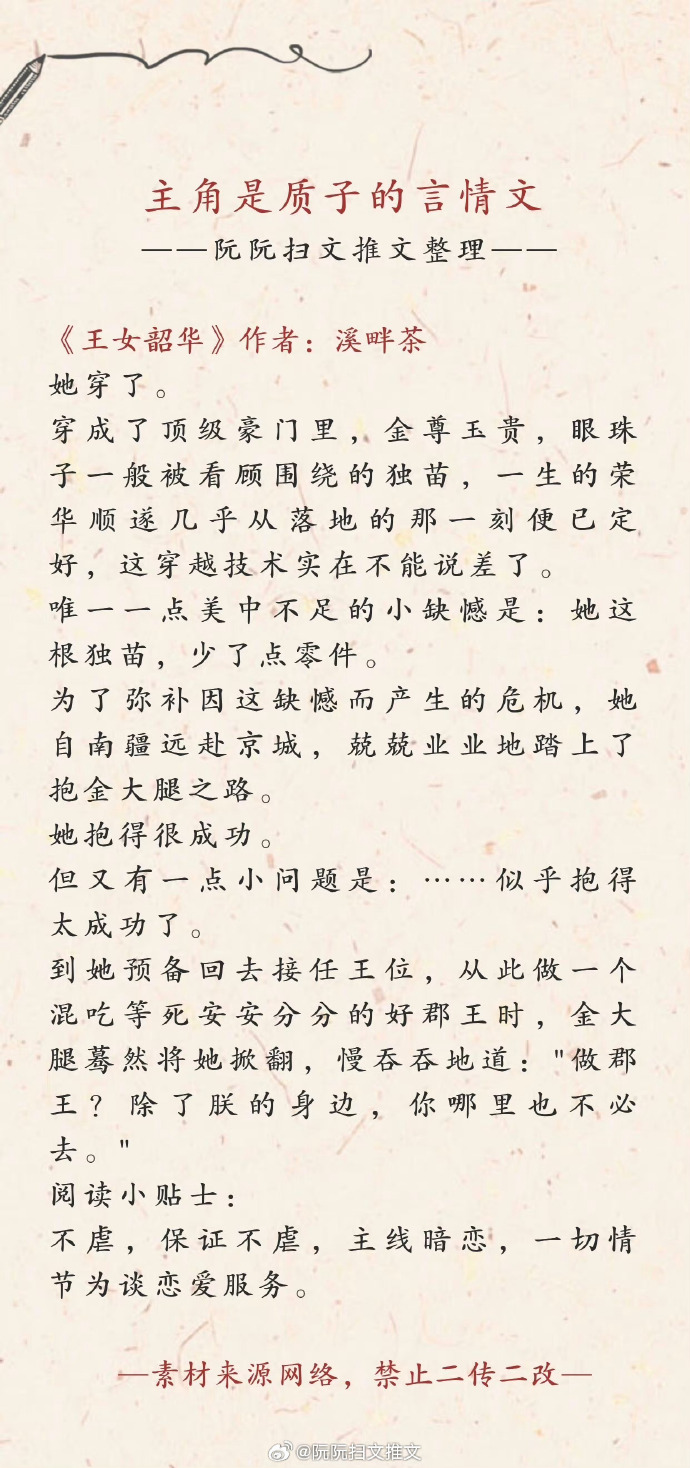 主角是质子的言情文
——阮阮扫文推文整理——
《王女韶华》作者：溪畔茶
她穿了。
穿成了顶级豪门里，金尊玉贵，眼珠
子一般被看顾围绕的独苗，一生的荣
华顺遂几乎从落地的那一刻便已定
好，这穿越技术实在不能说差了。
唯一一点美中不足的小缺憾是：她这
根独苗，少了点零件。
为了弥补因这缺憾而产生的危机，她
自南疆远赴京城，兢兢业业地踏上了
抱金大腿之路。
她抱得很成功。
但又有一点小问题是：……似乎抱得
太成功了。
到她预备回去接任王位，从此做一个
混吃等死安安分分的好郡王时，金大
腿蓦然将她掀翻，慢吞吞地道："做郡
王？除了朕的身边，你哪里也不必
去。"
阅读小贴士：
不虐，保证不虐，主线暗恋，一切情
节为谈恋爱服务。
—素材来源网络，禁止二传二改—
@阮阮扫文推文